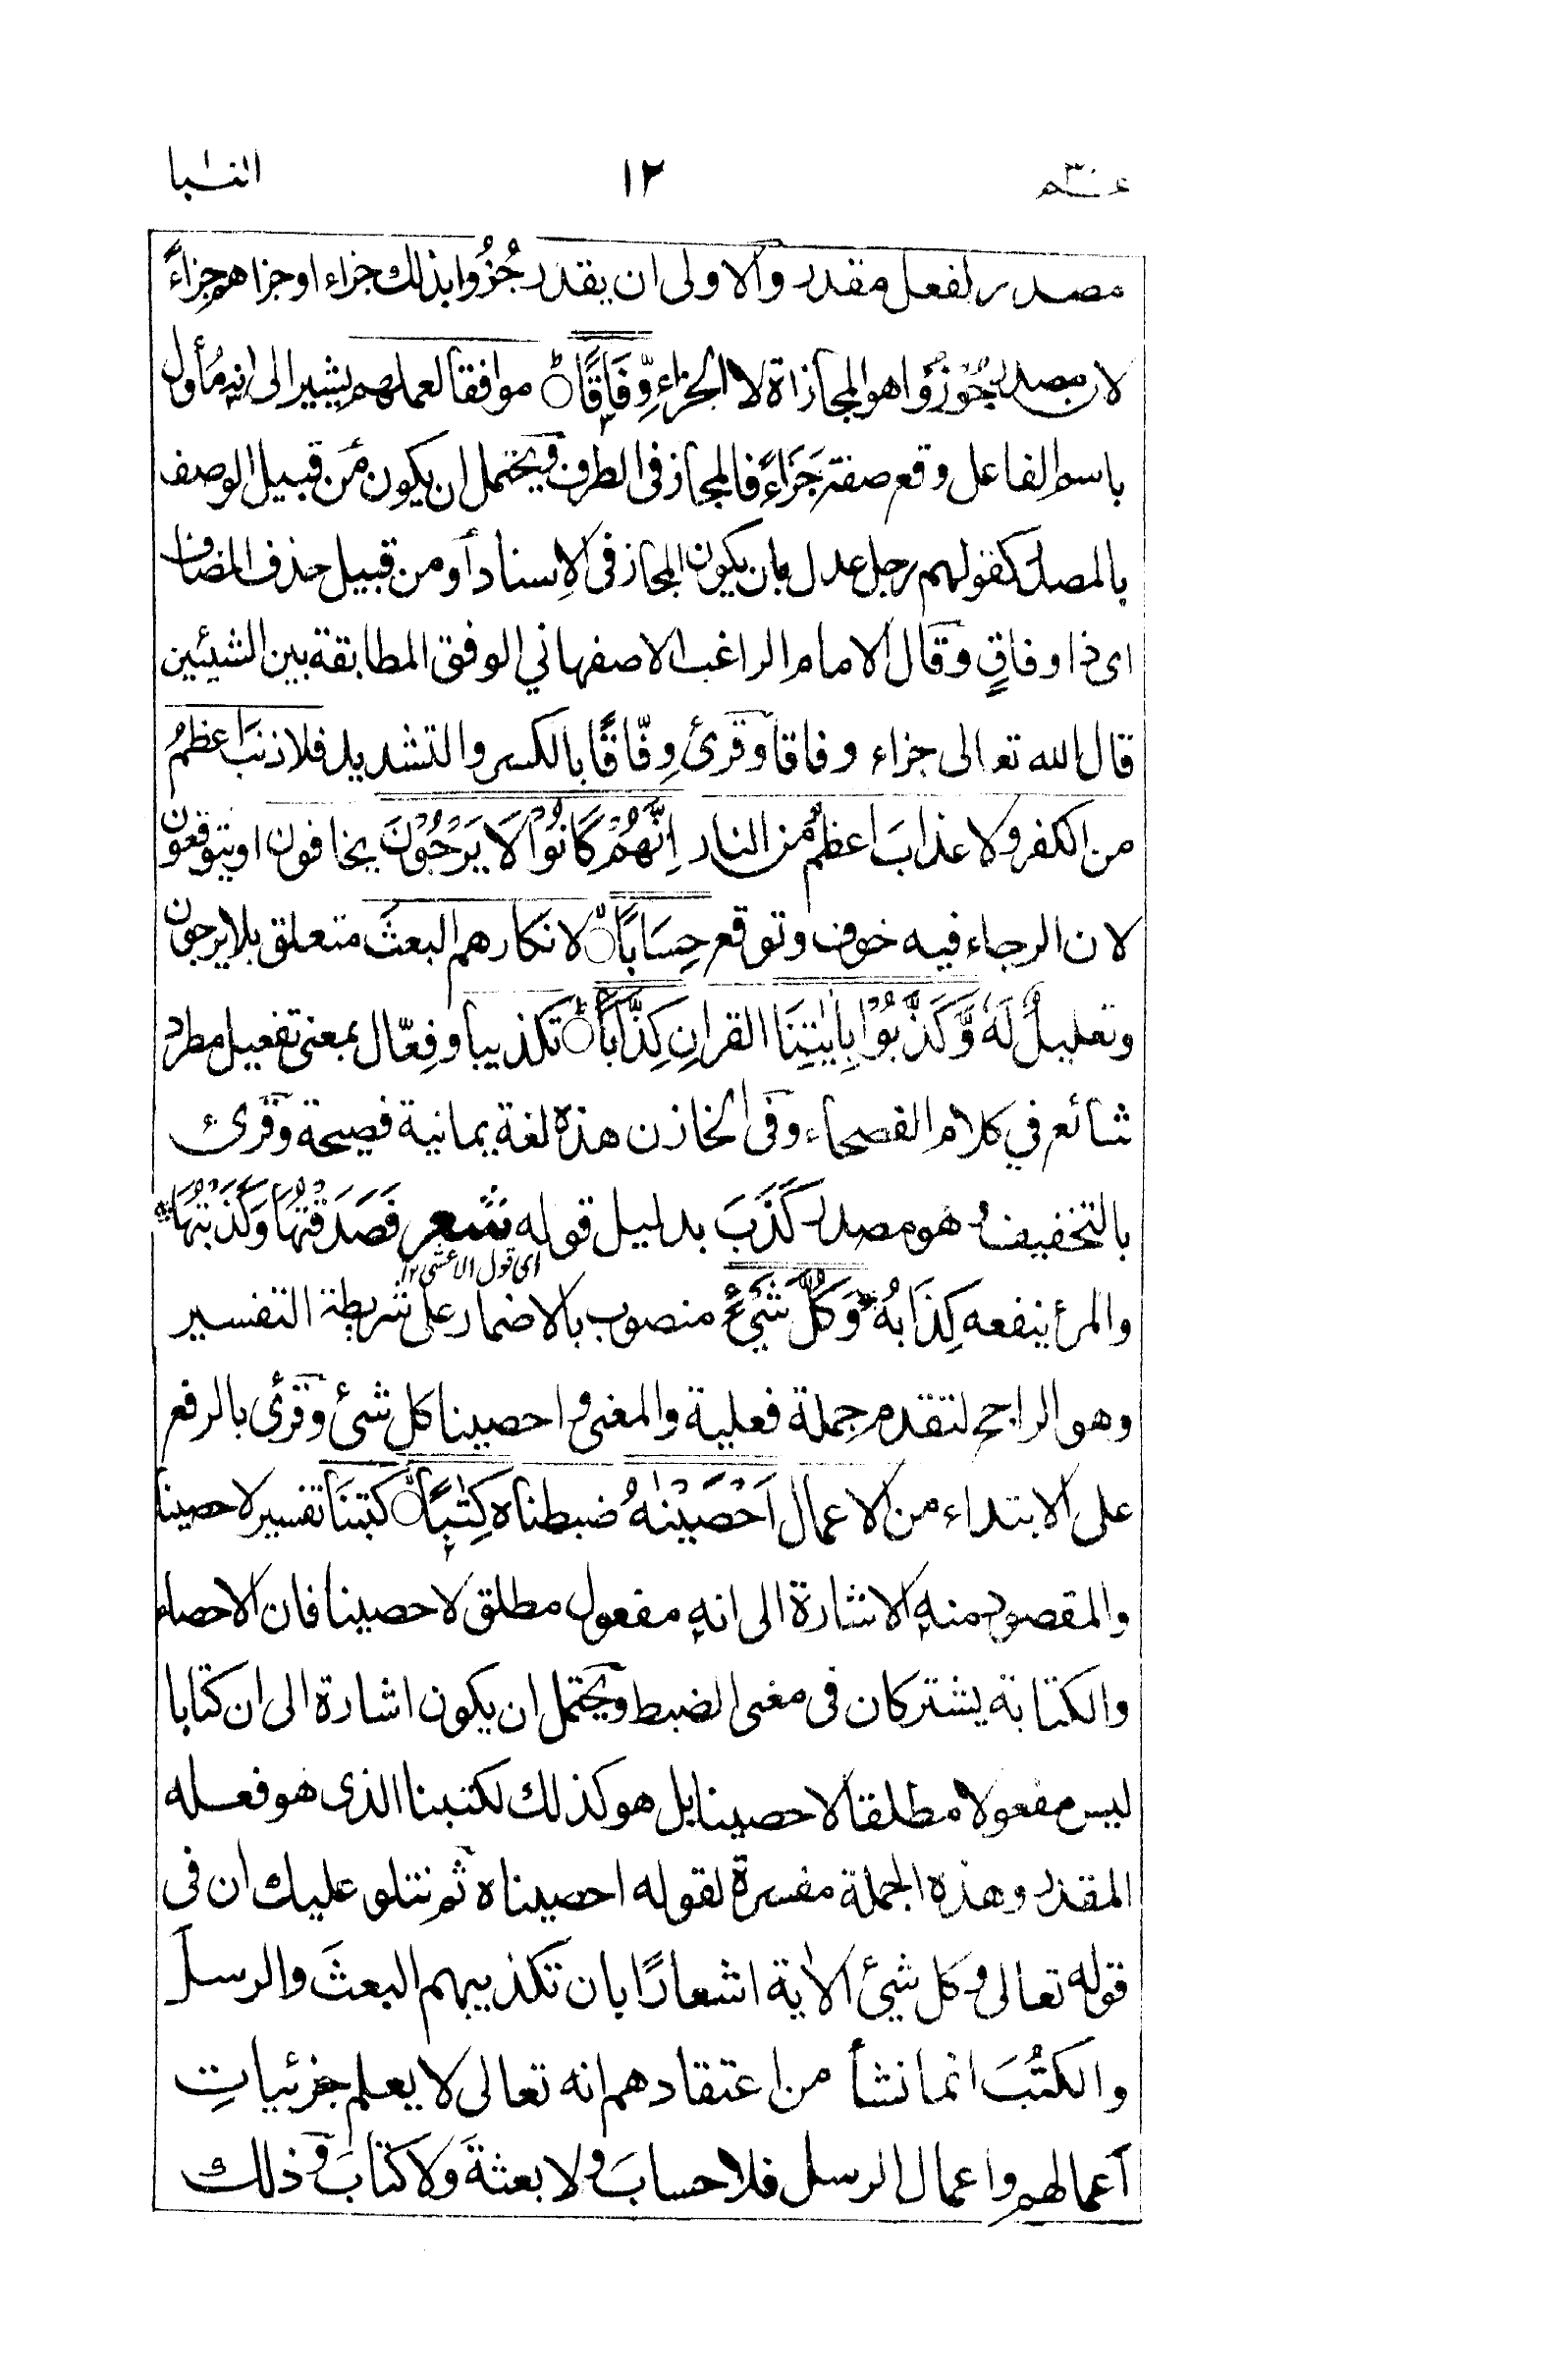 عــم ١٢ النبا
مصدر لفعل مقدر والاولى ان يقدر جُزُوا بذلك جزاء او جزاهم جِزاءً
لان مصدر جُوْزُوْا هو المجازاة لا الجزاءِ وِّفَاقًا ؕ موافقا لعملهم يشير الى انه مُأول
باسم الفاعل وقع صفة جَزَاءً فالمجاز فى الطرف ويحتمل ان يكون من قبيل الوصف
بالمصدر كقولهم رجل عدل بان يكون المجاز فى الاِسناد أو من قبيل حذف المضاف
اى ذا وفاقٍ وقال الامام الراغب الاصفهاني الوفق المطابقة بين الشيئين
قال الله تعالى جزاء وفاقا وقرئ وِفّاقًا بالكسر والتشديد فلا ذنبَ اعظمُ
من الكفر ولا عذابَ اعظمُ من النار اِنَّهُمْ كَانُوْا لَا يَرْجُوْنَ يخافون او يتوقعون
لان الرجاء فيه خوف وتوقع حِسَابًا ۙ لانكارهم البعثَ متعلق بلا يرجون
وتعليلٌ لَهٗ وَّكَذَّبُوْا بِاٰيٰتِنَا القرانِ كِذَّابًا ؕ تكذيبا وفِعّال بمعنى تفعيل مطرد
شائع في كلام الفصحاء وفى الخازن هذه لغة يمانية فصيحة وقرئ
بالتخفيف وهو مصدر كَذَبَ بدليل قوله شعر فَصَدَقْتُهَا وَكَذَبْتُهَا
اى قول الاعشى ١٢
والمرأ ينفعه كِذَابُهٗ وَكُلَّ شَيْءٍ منصوب بالاضمار على شريطة التفسير
وهو الراجح لتقدم جملة فعلية والمعنى واحصينا كل شئ وقرئ بالرفع
على الابتداء من الاعمال اَحْصَيْنٰهُ ضبطناه كِتٰبًا ۙ كتبنَا تفسير لاحصينا
والمقصود منه الاشارة الى انه مفعول مطلق لاحصينا فان الاحصاء
والكتابة يشتركان فى معنى الضبط ويحتمل ان يكون اشارة الى ان كتابا
ليس مفعولا مطلقا لاحصينا بل هو كذلك لكتبنا الذى هو فعله
المقدر وهذه الجملة مفسرة لقوله احصيناه ثم نتلو عليك ان فى
قوله تعالى وكل شيئ الاية اشعارًا بان تكذيبهم البعثَ والرسلَ
والكتُبَ انما نشأ من اعتقادهم انه تعالى لا يعلم جزئياتِ
أعمالهم واعمال الرسل فلا حسابَ ولا بعثةَ ولا كتابَ وذلك